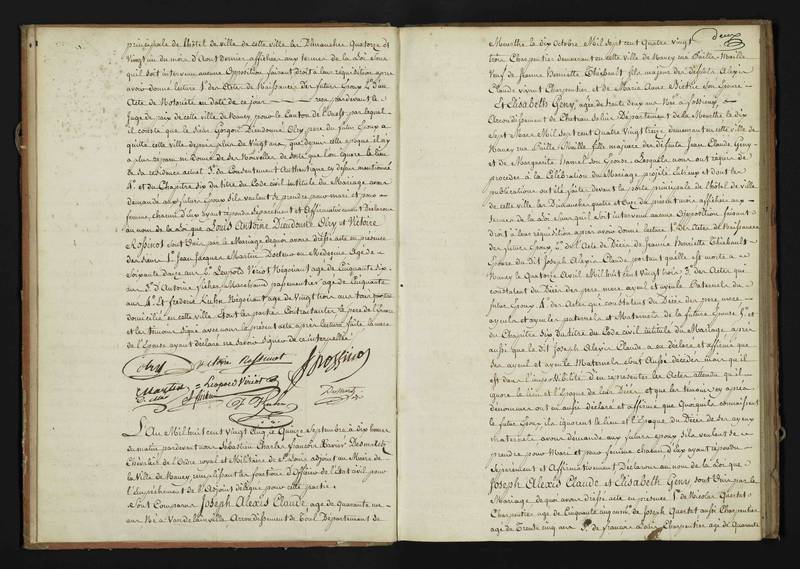 principale de l'hôtel de ville de cette ville les Dimanches Quatorze et
Vingt un du mois d'Aout dernier affichées aux termes de la Loi sans
qu'il soit intervenu aucune Opposition faisant droit à leur réquisition après
avoir donné lecture 1° des Actes de Naissances des futurs Epoux 2° d'un
Acte de Notoriété en date de ce jour par devant le
Juge de paix de cette ville de Nancy pour le Canton de l'Ouest par lequel
il conste que le Sieur Gorgon Dieudonné Oléry pere du futur Epoux a
quitté cette ville depuis plus de Vingt ans, que depuis cette epoque il n'y
a plus reparu ni donné de ses Nouvelles de sorte que l'on ignore le lieu
de sa résidence actuel 3° du Consentement Authentique cy dessus mentionné
4° et du Chapitre six du titre du Code civil intitulé du Mariage avons
demandé aux futurs Epoux s'ils veulent se prendre pour mari et pour
femme, chacun d'eux ayant répondu Séparément et affirmativement Déclarons
au nom de la loi que Louis Antoine Dieudonné Oléry et Victoire
Rossinot sont Unis par le Mariage de quoi avons dressé acte en présence
des Sieurs 1° Jean Jacques Martin Docteur en Médecine Agé de
Soixante douze ans 2° Leopold Vériot Négociant agé de Cinquante six
ans 3° d'Antoine Fisher Marchand passementier agé de Cinquante
ans 4° et Frédéric Kuhn Négociant agé de Vingt trois ans tous quatre
domiciliés en cette ville. Et ont les parties Contractantes le pere de l'Epouse
et les témoins signé avec nous le présent acte après lecture faite la mere
de l'Epouse ayant déclaré ne savoir signer de ce interpellée
Oléry Victoire Rossinot
J Rossinot
Martin Leopold Vériot
L'An Mil huit cent Vingt Cinq le Quinze Septembre à dix heures
du matin pardevant nous Sébastien Charles François Xavier Desmaretz
Chevalier de l'Ordre royal et Militaire de St Louis adjoint au Maire de
la Ville de Nancy remplissant les fonctions d'Officier de l'Etat civil pour
l'Empêchement de l'Adjoint délégué pour cette partie
Sont Comparus Joseph Alexis Claude, agé de Quarante deux
ans Né à Vandelainville Arrondissement de Toul Département de
deux
Meurthe le dix Octobre Mil Sept cent Quatre Vingt
trois Charpentier demeurant en cette ville de Nancy rue Paille-Maille
Veuf de Jeanne Henriette Thiébault fils majeur des défunts Alexis
Claude vivant Charpentier et de Marie Anne son Epouse
Et Elisabeth Geny, agée de trente deux ans Née à
Arrondissement de Chateau Salins Département de la Meurthe le dix
Sept Mars Mil Sept cent Quatre Vingt treize demeurant en cette ville de
Nancy rue Paille Maille fille majeure des défunts Jean Claude Geny
et de Marguerite Hamel son Epouse Lesquels nous ont requis de
procéder à la Célébration du Mariage projeté entre eux et dont les
publications ont été faites devant la porte principale de l'hôtel de ville
de cette ville les Dimanches quatre et Onze du présent mois affichées aux
termes de la Loi sans qu'il soit intervenu aucune Opposition faisant
droit à leur réquisition après avoir donné lecture 1° des Actes de Naissances
des futurs Epoux, 2° de l'Acte de Décès de Jeanne Henriette Thiébault
Epouse du dit Joseph Alexis Claude portant quelle est morte à
Nancy le Quatorze Avril Mil huit cent Vingt trois 3° des Actes qui
constatent du Décès des pere mere ayeul et ayeule Paternels du
futur Epoux 4° des Actes qui constatent du Décès des pere mere
ayeuls et ayeules paternels et Maternels de la future Epouse 5° et
du Chapitre six du titre du Code civil intitulé du Mariage après
aussi que le dit Joseph Alexis Claude a eu déclaré et affirmé que
ses ayeul et ayeule Maternels sont Aussi décédés mais qu'il
est dans l'impossibilité d'en représenter les Actes attendu qu'il
ignore le lieu et l'Epoque de leur Décès et que les témoins cy après
dénommés ont eu aussi déclaré et affirmé que Quoiqu'ils connaissent
le futur Epoux ils ignorent le lieu et l'Epoque du Décès de ses ayeux
maternels avons demandé aux futurs epoux s'ils veulent se
prendre pour Mari et pour femme chacun d'eux ayant répondu
Séparément et Affirmativement Déclarons au nom de la Loi que
Joseph Alexis Claude et Elisabeth Geny sont Unis par le
Mariage de quoi avons dressé acte en présence 1° de Nicolas Quertet
Charpentier agé de Cinquante cinq ans 2° de Joseph Quertet aussi Charpentier
agé de Trente cinq ans 3° de François Charpentier agé de Quarante